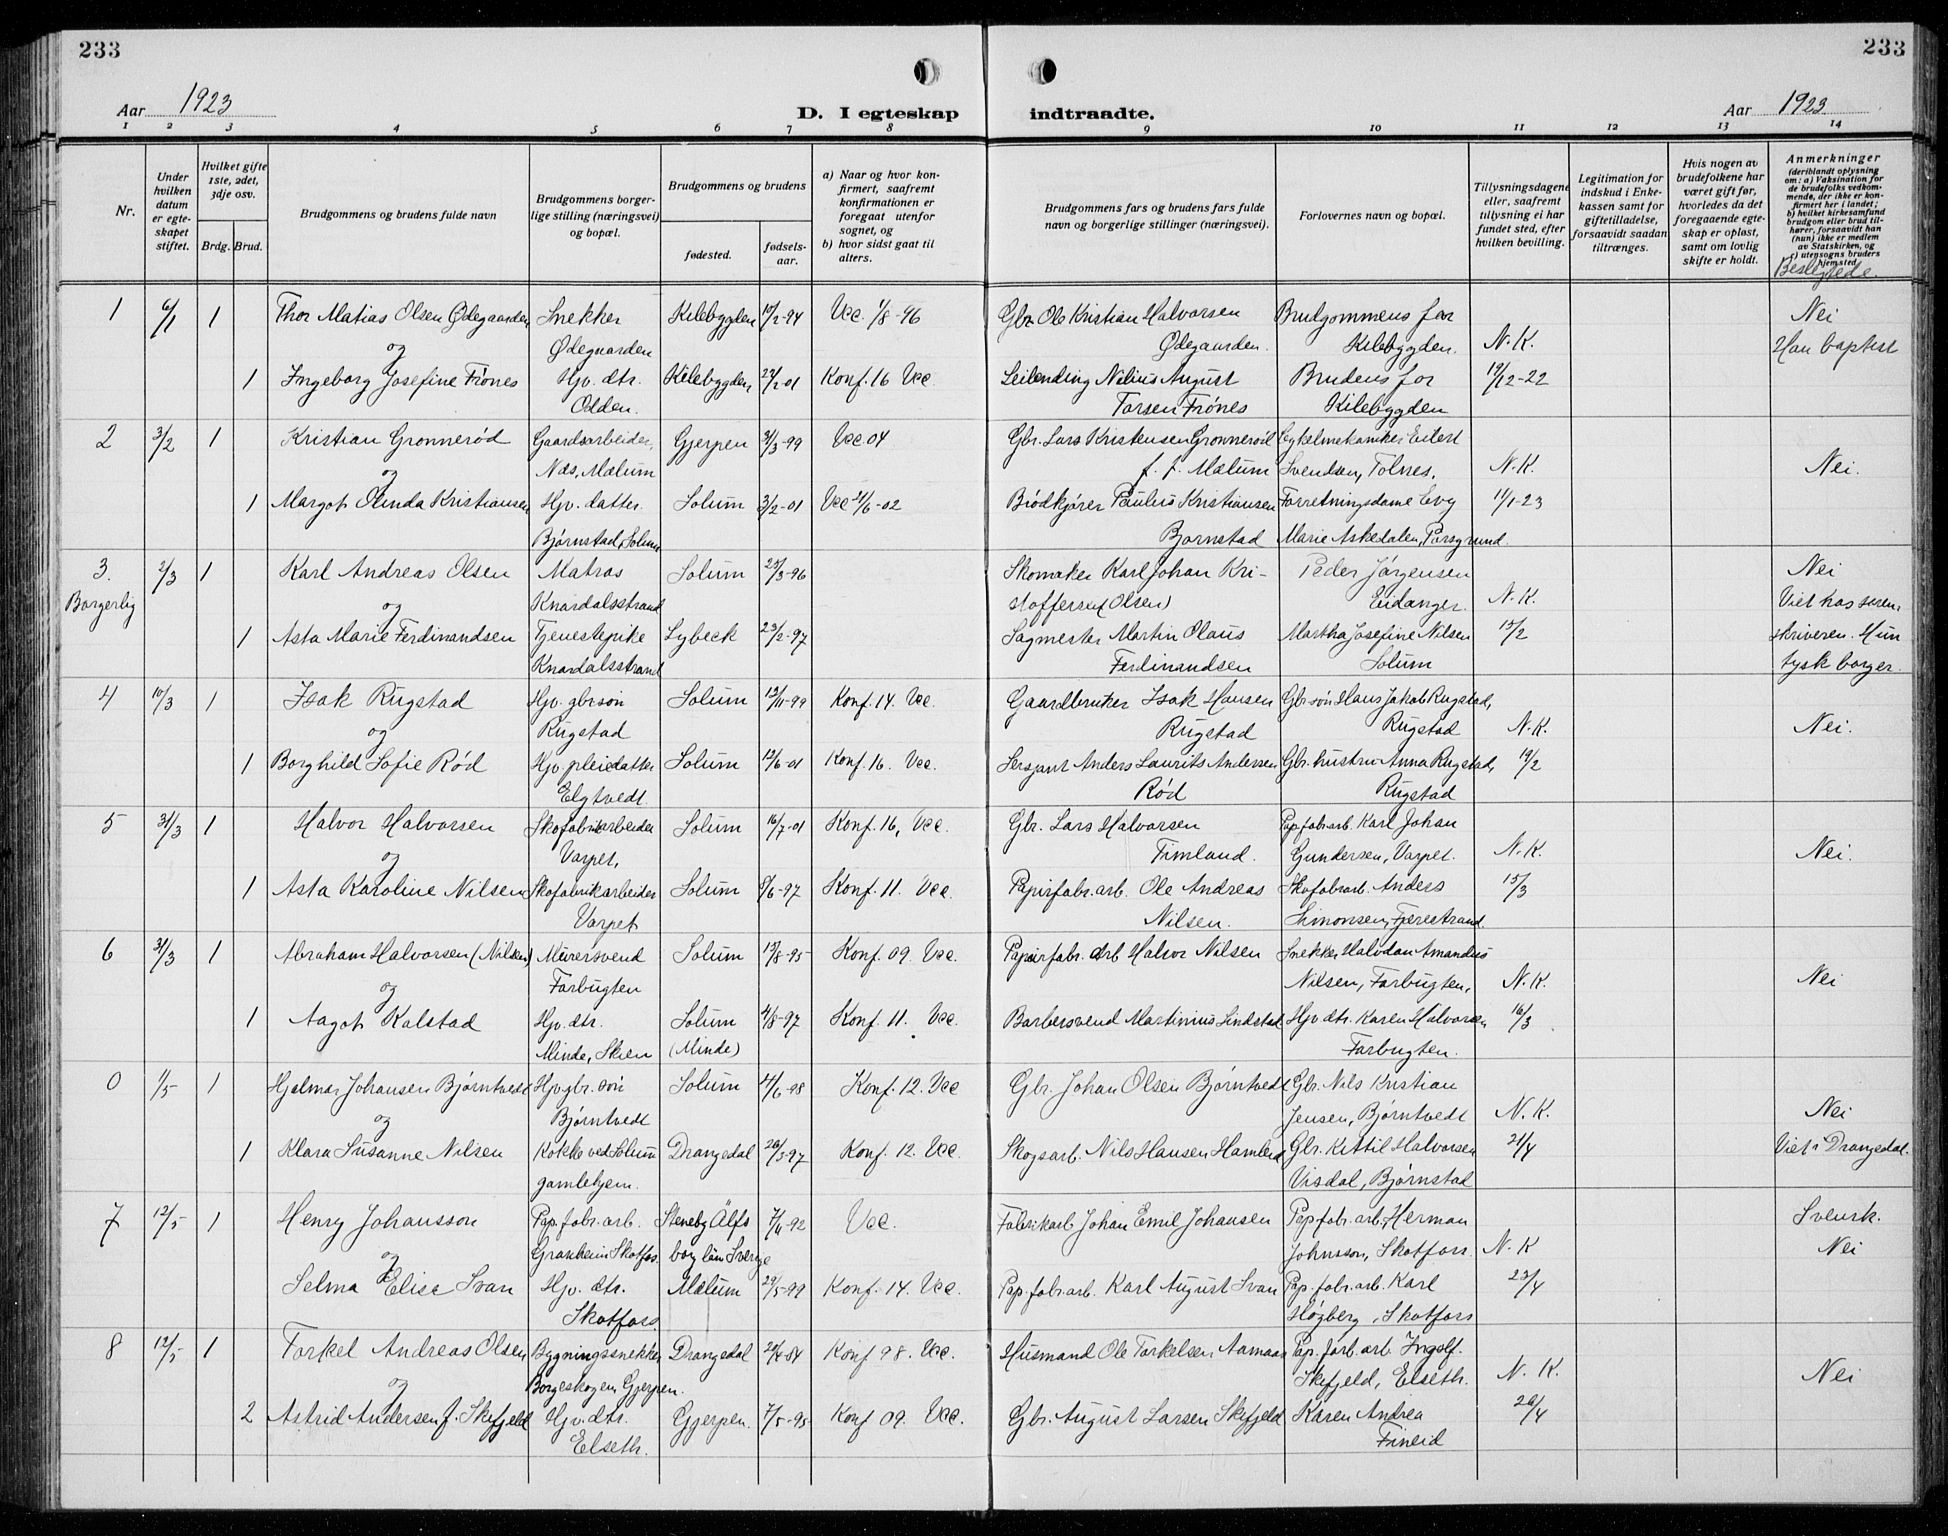 233
233
Aar 1923
D. I egteskap indtraadte.
Aar 1923.
1 2 3 4 5 6 7 8 9 10 11 12 13 14
Nr.
Under hvilken datum er egteskapet stiftet.
Hvilket gifte 1ste, 2det, 3dje osv.
Brdg. Brud.
Brudgommens og brudens fulde navn
Brudgommens borgerlige stilling (næringsvei) og bopæl.
Brudgommens og brudens
fødested.
fødselsaar.
a) Naar og hvor konfirmert, saafremt konfirmationen er foregaat utenfor sognet, og
b) hvor sidst gaat til alters.
Brudgommens fars og brudens fars fulde navn og borgerlige stillinger (næringsvei).
Forlovernes navn og bopæl.
Tillysningsdagene eller, saafremt tillysning ei har fundet sted, efter hvilken bevilling.
Legitimation for indskud i Enkekassen samt for giftetilladelse, forsaavidt saadan tiltrænges.
Hvis nogen av brudefolkene har været gift før, hvorledes da det foregaaende egteskap er opløst, samt om lovlig skifte er holdt.
Anmerkninger
(deriblandt oplysning om: a) Vaksination for de brudefolks vedkommende, der ikke er konfirmert her i landet; b) hvilket kirkesamfund brudgom eller brud tilhører, forsaavidt han (hun) ikke er medlem av Statskirken, og c) utensogns bruders hjemsted.
Beslegtede.
1 6/1 1 Thor Matias Olsen Ødegaarden Snekker Kilebygden 10/2-94 Vcc. 1/8-96 Gbr Ole Kristian Halvorsen Brudgommens far Nei
og Ødegaarden Ødegaarden. Kilebygden. N.K. Han baptist
1 Ingeborg Josefine Frönes Hjv. dtr. Kilebygden 22/2-01 Konf. 16 Vcc. Leilending Nilius August Brudens far 19/12-22
Odden. Torsen Frönes Kilebygden
2 3/2 1 Kristian Grönneröd Gaardsarbeider, Gjerpen 31/3-99 Vcc 04 Gbr. Lars Kristensen Grönneröd Cykelmekaniker Eilert
og Næs, Mælum f. f. Mælum Svendsen, Tolnes, N.K. Nei.
1 Margot Olinda Kristiansen Hjv. datter. Solum 3/2-01 Vcc 21/6-02 Brödkjører Paulius Kristiansen Forretningsdame Evy 11/1-23
Bjørnstad, Solum Bjornstad Marie Askedalen, Porsgrund.
3. 2/3 1 Karl Andreas Olsen Matros Solum 23/3-96 Skomaker Karl Johan Kri- Peder Jørgensen Nei
Borgerlig og Knardalsstrand stoffersen (Olsen) Eidanger. N.K. Viet hos soren-
1 Asta Marie Ferdinandsen Tjenestepike Lybeck 23/2-97 Sagmester Martin Olaus Martha Josefine Nilsen 15/2 skriveren. Hun
Knardalsstrand Ferdinandsen Solum tysk borger.
4 10/3 1 Isak Rugstad Hjv. gbr sön Solum 12/11-99 Konf. 14. Vcc. Gaardbruker Isak Hansen Gbr. søn Hans Jakob Rugstad,
og Rugstad Rugstad Rugstad N.K. Nei.
1 Borghild Sofie Rød Hjv. pleiedatter Solum 12/6-01 Konf. 16. Vcc. Sersjant Anders Laurits Andersen Gbr. hustru Anna Rugstad, 19/2
Elgtvedt. Rød Rugstad
5 31/3 1 Halvor Halvorsen Skofabrikarbeider Solum 16/7-01 Konf. 16, Vcc. Gbr. Lars Halvorsen Papfabr.arb. Karl Johan
og Varpet, Timland. Gundersen, Varpet. N.K. Nei.
1 Asta Karoline Nilsen Skofabrikarbeider Solum 8/6-97 Konf. 11. Vcc. Papirfabr.arb. Ole Andreas Skofabrarb. Anders 15/3
Varpet Nilsen. Simonsen, Fjerestrand.
6 31/3 1 Abraham Halvorsen (Nilsen) Murersvend Solum 13/8-95 Konf. 09. Vcc. Papirfabr. arb Halvor Nilsen Snekker Halvdan Amandus
og Farbugten Nilsen, Farbugten, N.K. Nei
1 Aagot Kalstad Hjv. dtr. Solum 4/8-97 Konf. 11. Vcc. Barbersvend Martinius Lindstad Hjv dtr. Karen Halvorsen 16/3
Minde, Skien (Minde) Farbugten.
0 1/5 1 Hjalmar Johansen Bjørntvedt Hjv. gbr. sön Solum 4/6-98 Konf. 12. Vcc Gbr. Johan Olsen Bjørntvedt Gbr. Nils Kristian
og Bjørntvedt Jensen, Bjørntvedt N.K. Nei
1 Klara Susanne Nilsen Kokke ved Solum Drangedal 26/3-97 Konf. 12. Vcc. Skogsarb. Nils Hansen Hamlerd Gbr. Kittil Halvorsen 21/4 Viet i Drangedal.
gamlehjem. Visdal, Bjørnstad
7 12/5 1 Henry Johansson Pap. fabr. arb. Steneby Älfs 7/4-92 Vcc. Fabrikarb Johan Emil Johansen Papfabr. arb. Herman Svensk.
og Granheim Skotfos. borg län Sverige Johnsson, Skotfoss N.K Nei
Selma Elise Svan Hjv. dtr. Mælum 29/5-99 Konf. 14. Vcc. Pap. fabr. arb. Karl August Svan Pap. fabr. arb. Karl 23/4
Skotfoss. Høgberg, Skotfoss
8 12/5 1 Torkel Andreas Olsen Bygningssnekker Drangedal 29/4-84 Konf 98. Vcc. Husmand Ole Torkelsen Aamaas Pap. fabr. arb. Ingolf
og Borgeskogen, Gjerpen. Skifjeld, Elseth. N.K. Nei
2 Astrid Andersen f. Skifjeld Hjv. dtr. Gjerpen. 7/5-95 Konf 09. Vcc. Gbr. August Larsen Skifjeld Karen Andrea 26/4
Elseth. Fineid